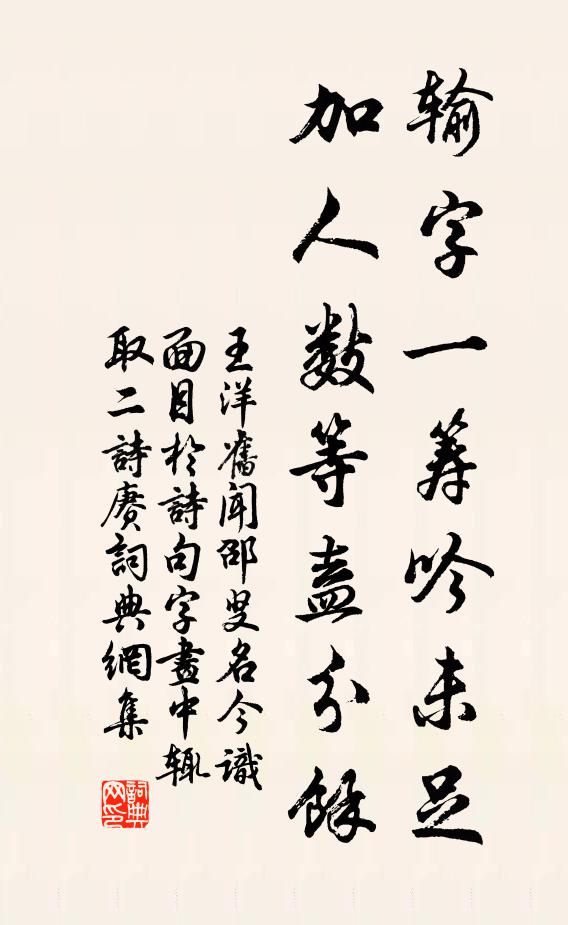 輸字一筹吟未足
加人數等盍分餘
王洋舊聞邵叟名今識
面目於詩句字畫中輒
取二詩賡詞典網集
詞典
网印